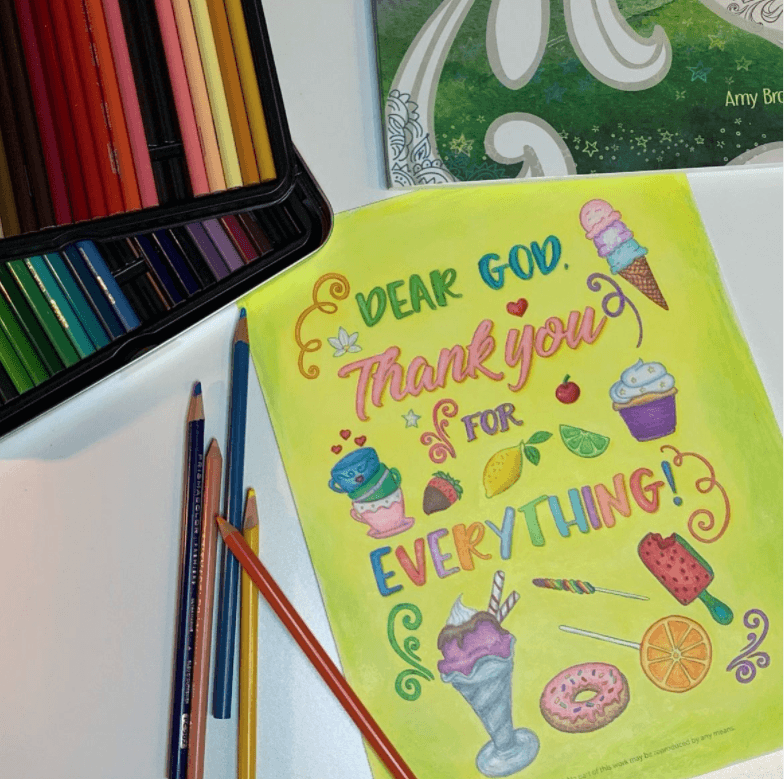 Amy Bro
DEAR GOD,
Thank you
FOR
EVERYTHING!
part of this work may be reproduced by any means.
PRISMACOLOR PREMIER